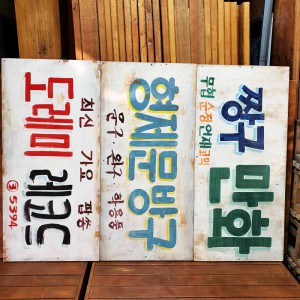 도레미 레코드
최신 가요 팝송
③5394
형제문방구
문구. 완구. 학용품
짱구 만화
무협 순정